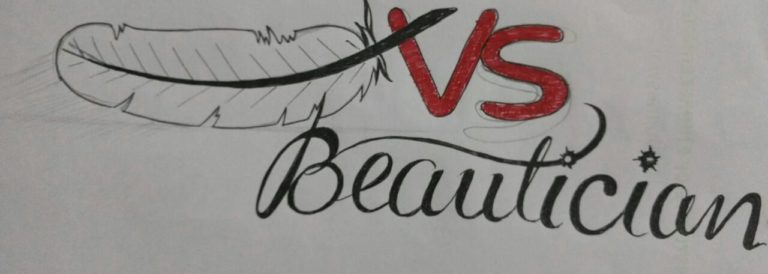 VS
Beautician